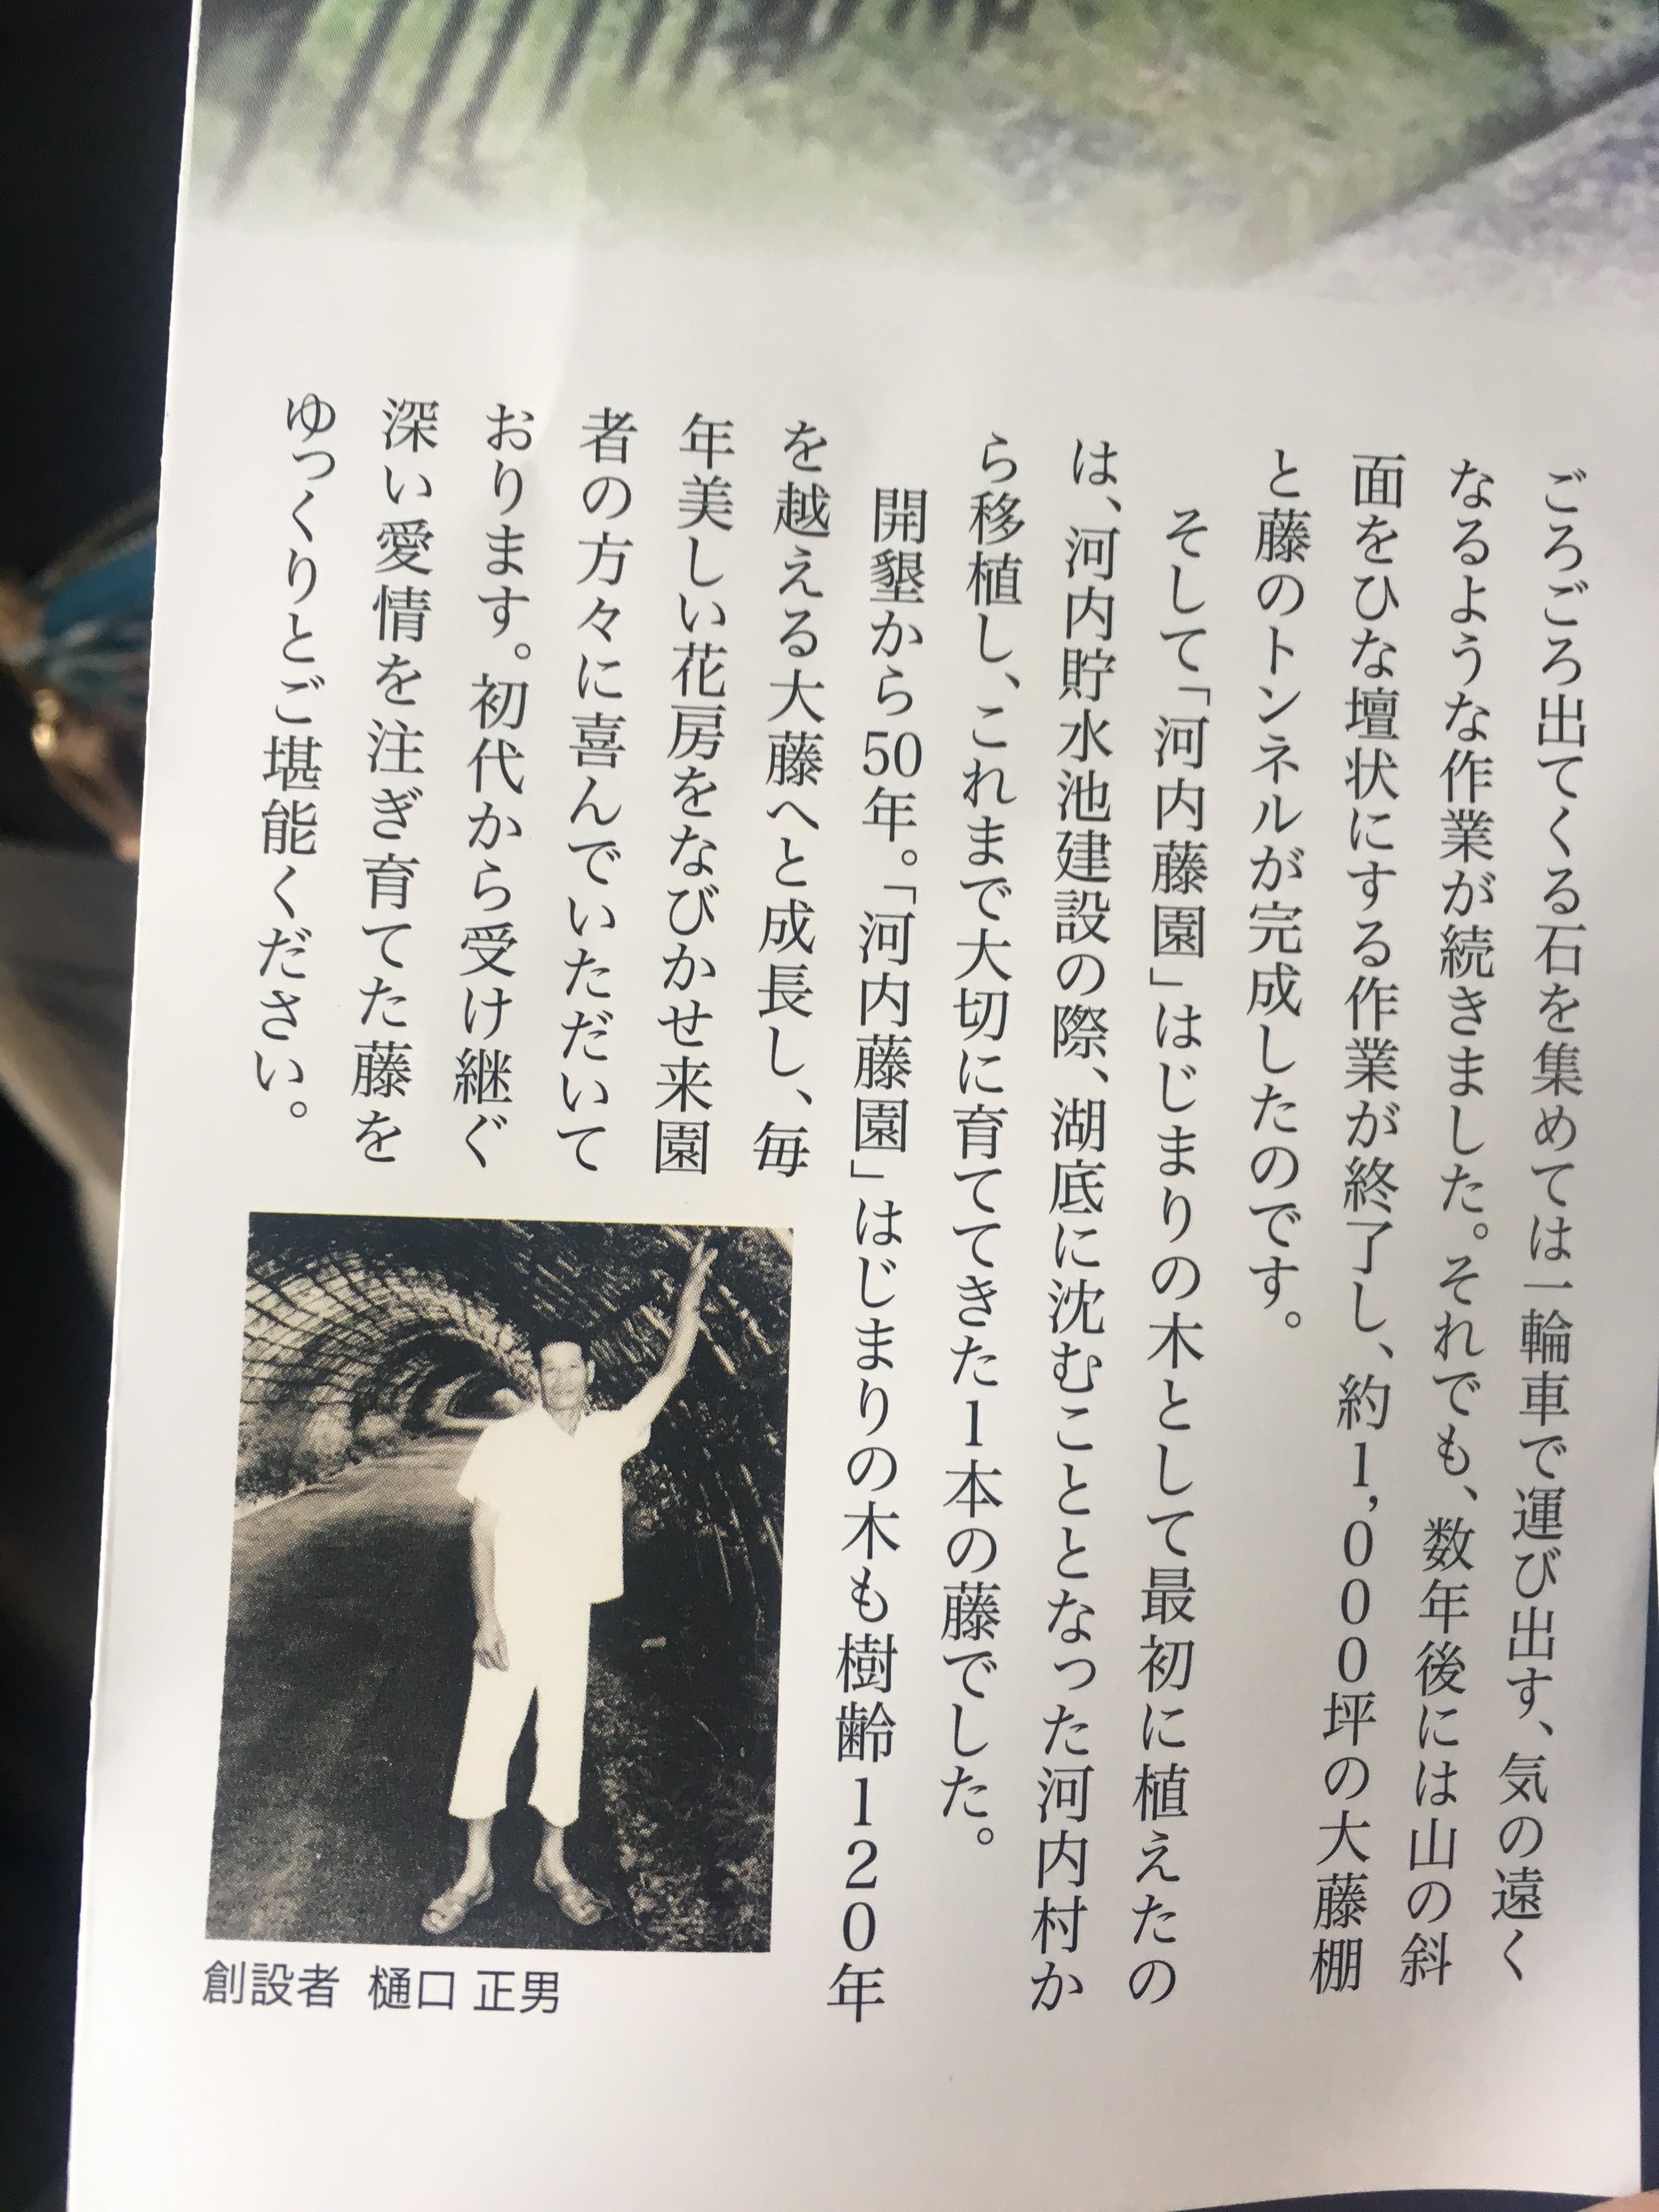 ごろごろ出てくる石を集めては一輪車で運び出す、気の遠く
なるような作業が続きました。それでも、数年後には山の斜
面をひな壇状にする作業が終了し、約1,000坪の大藤棚
と藤のトンネルが完成したのです。
そして「河内藤園」はじまりの木として最初に植えたの
は、河内貯水池建設の際、湖底に沈むこととなった河内村か
ら移植し、これまで大切に育ててきた1本の藤でした。
開墾から50年。「河内藤園」はじまりの木も樹齢120年
を越える大藤へと成長し、毎
年美しい花房をなびかせ来園
者の方々に喜んでいただいて
おります。初代から受け継ぐ
深い愛情を注ぎ育てた藤を
ゆっくりとご堪能ください。
創設者 樋口 正男